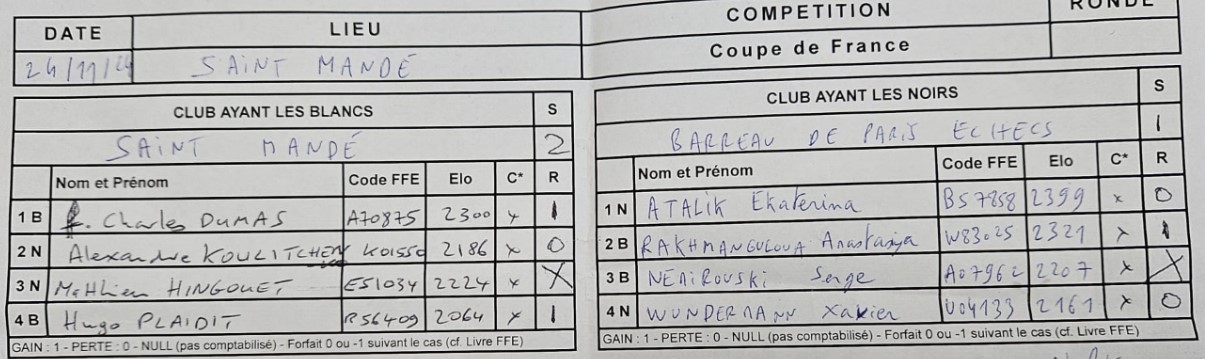 DATE LIEU COMPETITION RONDE
24/11/24 SAINT MANDÉ Coupe de France
CLUB AYANT LES BLANCS S
SAINT MANDÉ 2
Nom et Prénom Code FFE Elo C* R
1 B Charles DUMAS A70875 2300 x 1
2 N Alexandre 2186 x 0
3 N Matthieu HINGOUET E51034 2224 x X
4 B Hugo PLAIDIT R56409 2064 x 1
GAIN : 1 - PERTE : 0 - NULL (pas comptabilisé) - Forfait 0 ou -1 suivant le cas (cf. Livre FFE)
CLUB AYANT LES NOIRS S
BARREAU DE PARIS ECHECS 1
Nom et Prénom Code FFE Elo C* R
1 N ATALIK Ekaterina B57858 2399 x 0
2 B RAKHMANGULOVA Anastasiya W83025 2321 x 1
3 B NEMIROVSKI Serge A07962 2207 x X
4 N WUNDERMANN Xavier U04133 2161 x 0
GAIN : 1 - PERTE : 0 - NULL (pas comptabilisé) - Forfait 0 ou -1 suivant le cas (cf. Livre FFE)